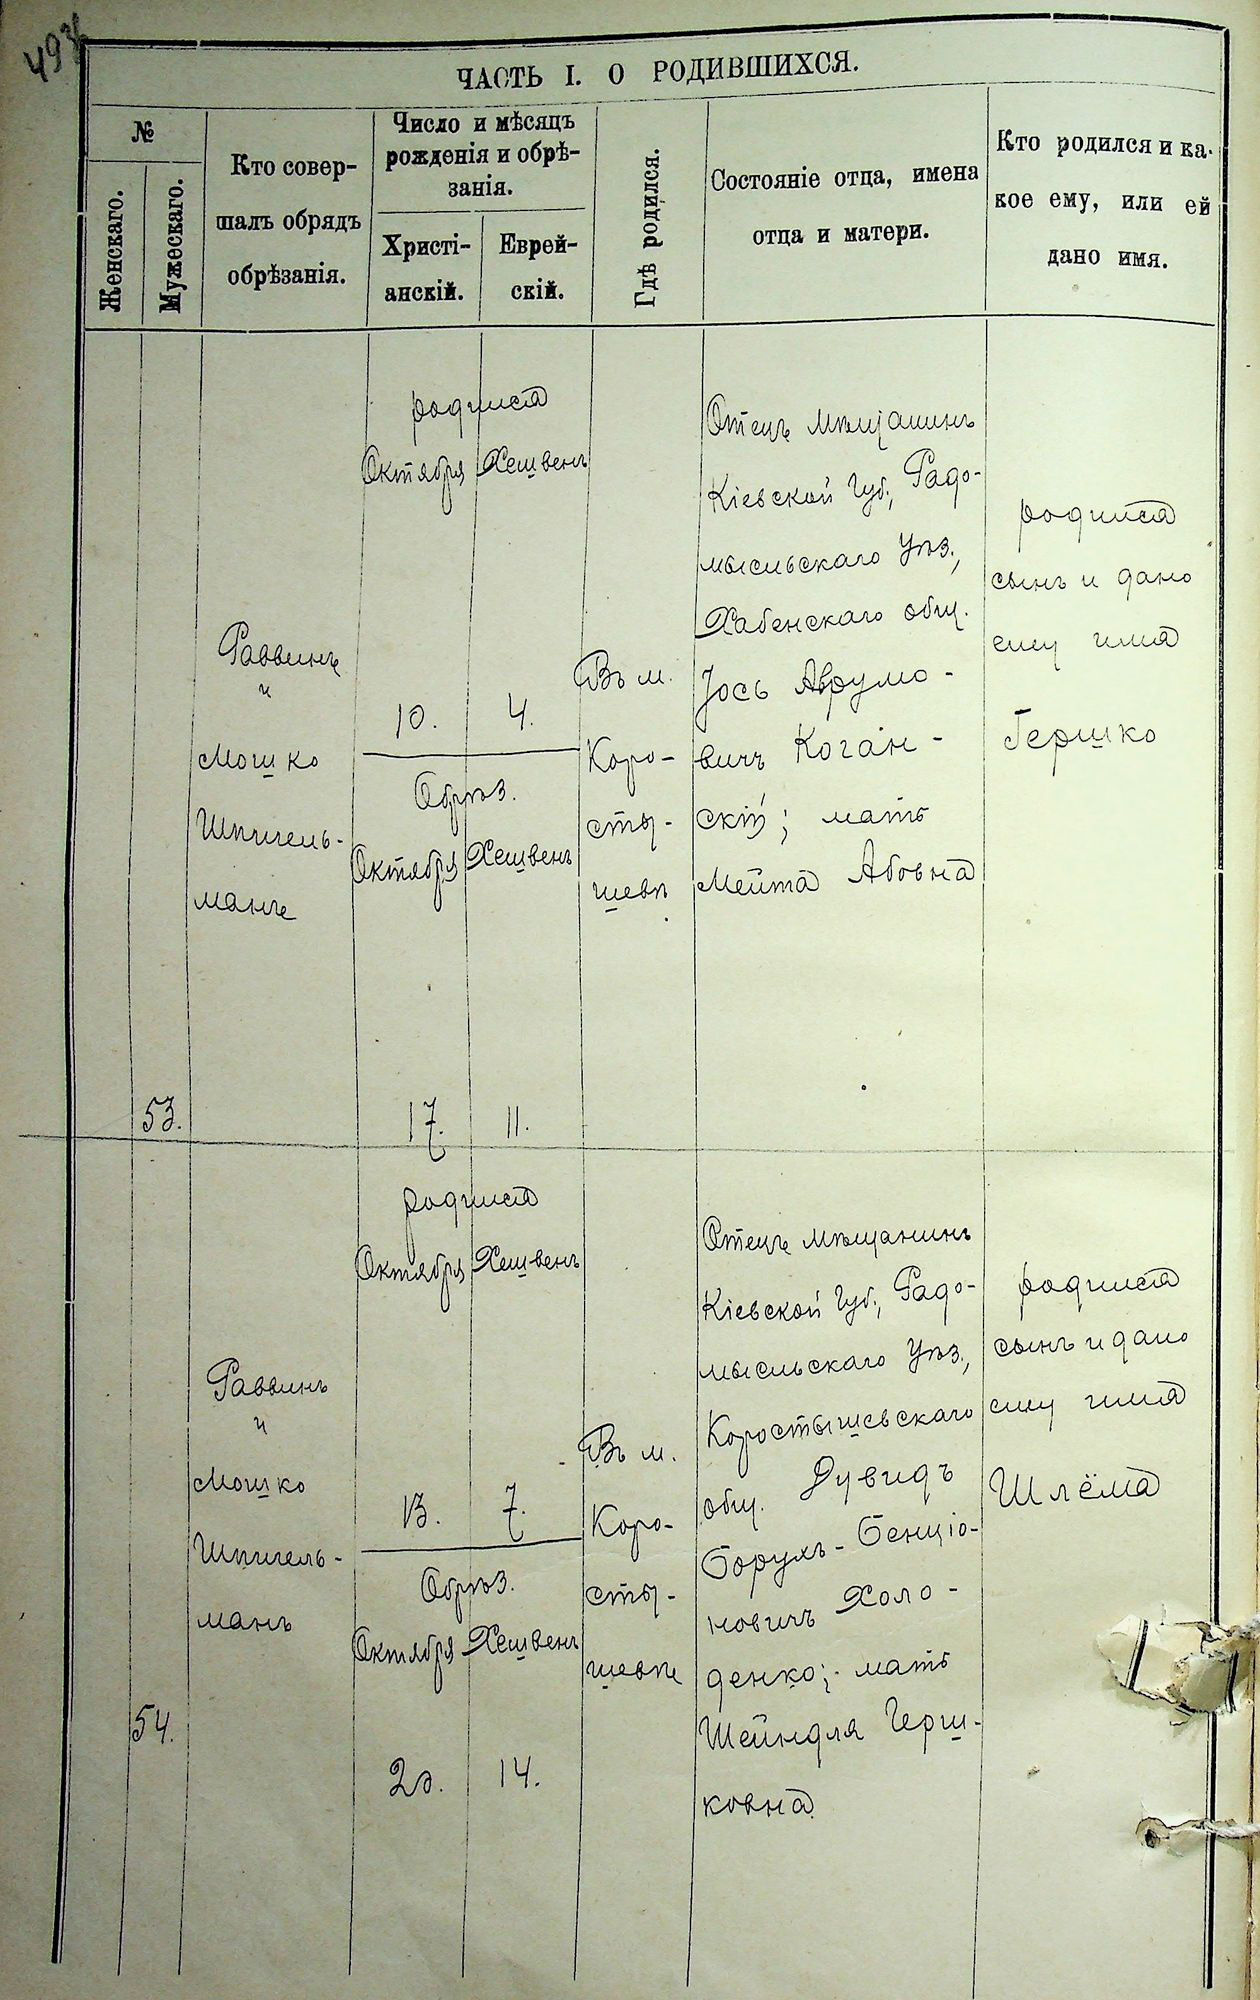 493
ЧАСТЬ I. О РОДИВШИХСЯ.
№
Женскаго.
Мужескаго.
Кто совер-
шалъ обрядъ
обрѣзанія.
Число и мѣсяцъ
рожденія и обрѣ-
занія.
Христі-
анскій.
Еврей-
скій.
Гдѣ родился.
Состояніе отца, имена
отца и матери.
Кто родился и ка-
кое ему, или ей
дано имя.
53.
Раввинъ
и
Мошко
Шпигель-
манъ
родился
Октября Хешвенъ
10. 4.
Обрѣз.
Октября Хешвенъ
17. 11.
Въ м.
Коро-
сты-
шевѣ
Отецъ мѣщанинъ
Кіевской Губ., Радо-
мысльскаго Уѣз.,
Хабенскаго общ.
Іось Аврумо-
вичъ Коган-
скій; мать
Мейта Абовна
родился
сынъ и дано
ему имя
Гершко
54.
Раввинъ
и
Мошко
Шпигель-
манъ
родился
Октября Хешвенъ
13. 7.
Обрѣз.
Октября Хешвенъ
20. 14.
Въ м.
Коро-
сты-
шевѣ
Отецъ мѣщанинъ
Кіевской Губ., Радо-
мысльскаго Уѣз.,
Коростышевскаго
общ. Дувидъ
Борухъ-Бенціо-
новичъ Холо-
денко; мать
Шейндля Герш-
ковна
родился
сынъ и дано
ему имя
Шлёма